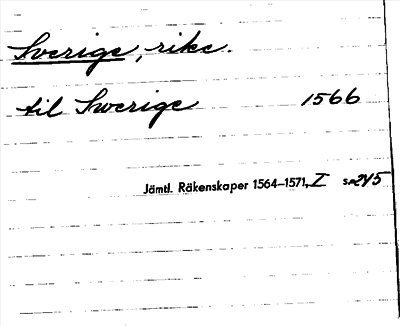 Sverige, rike.
til Swerige 1566
Jämtl. Räkenskaper 1564–1571, I s. 245